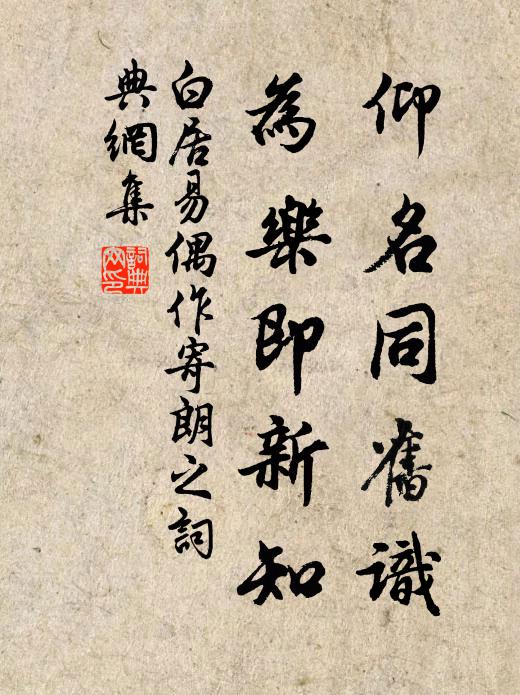 仰名同舊識
為樂即新知
白居易偶作寄朗之詞
典網集
詞典
网印